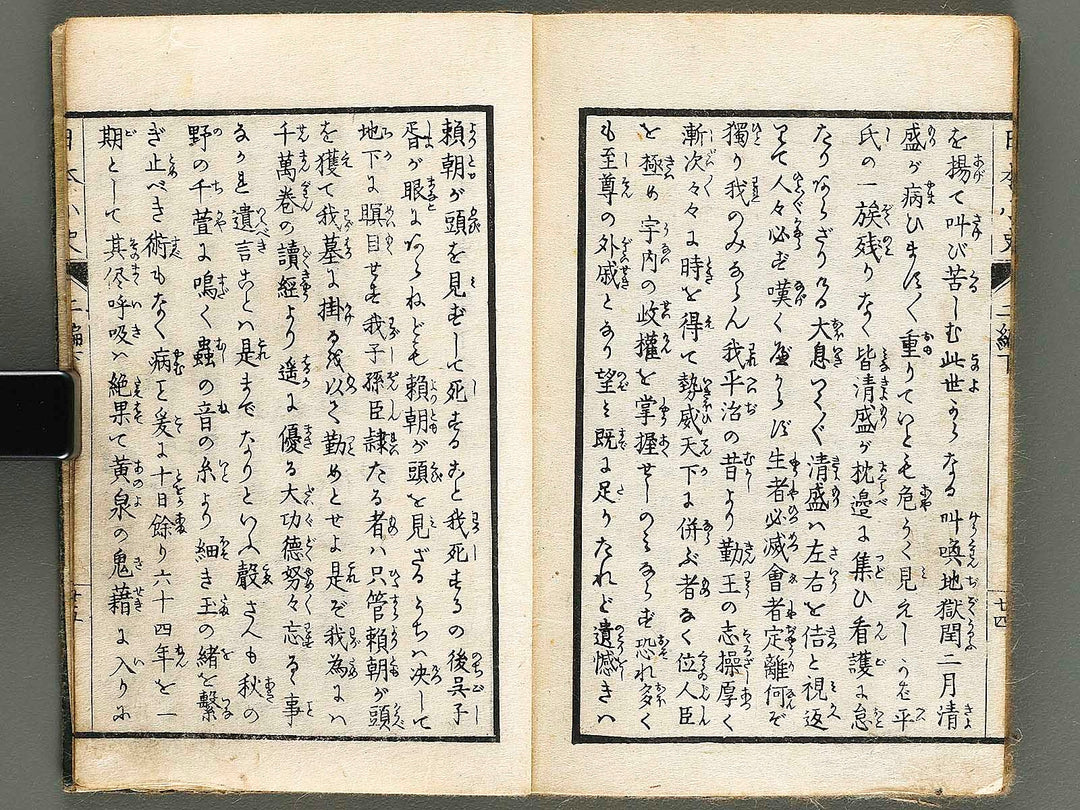 を揚て叫び苦しむ此世からなる叫喚地獄閏二月清
盛が病ひます〱重りていとも危うく見えしかば平
氏の一族残りなく皆清盛が枕邊に集ひ看護に怠
たりなからざりける大息つくづく清盛ハ左右を佶と視返
して人々必ず嘆く可からず生者必滅會者定離何ぞ
獨り我のみならん我平治の昔より勤王の志操厚く
漸次々々に時を得て勢威天下に併ぶ者なく位人臣
を極め宇内の政權を掌握せしのみならず恐れ多く
も至尊の外戚となり望ミ既に足りたれど遺憾きハ
頼朝が頭を見ずして死するなと我死するの後呉子
胥が眼にあらねども頼朝が頭を見ざるうちハ決して
地下に瞑目せず我子孫臣隷たる者ハ只管頼朝が頭
を獲て我墓に掛るを以て勤めとせよ是ぞ我為にハ
千萬巻の讀經より遥に優る大功德努々忘るゝ事
なかれ遺言ことハ是までなりといふ聲さへも秋の
野の千萱に鳴く蟲の音の糸より細き玉の緒を繋
ぎ止べき術もなく病こと爰に十日餘り六十四年を一
期として其侭呼吸ハ絶果て黄泉の鬼藉に入りに
二編下
二編下
廿四